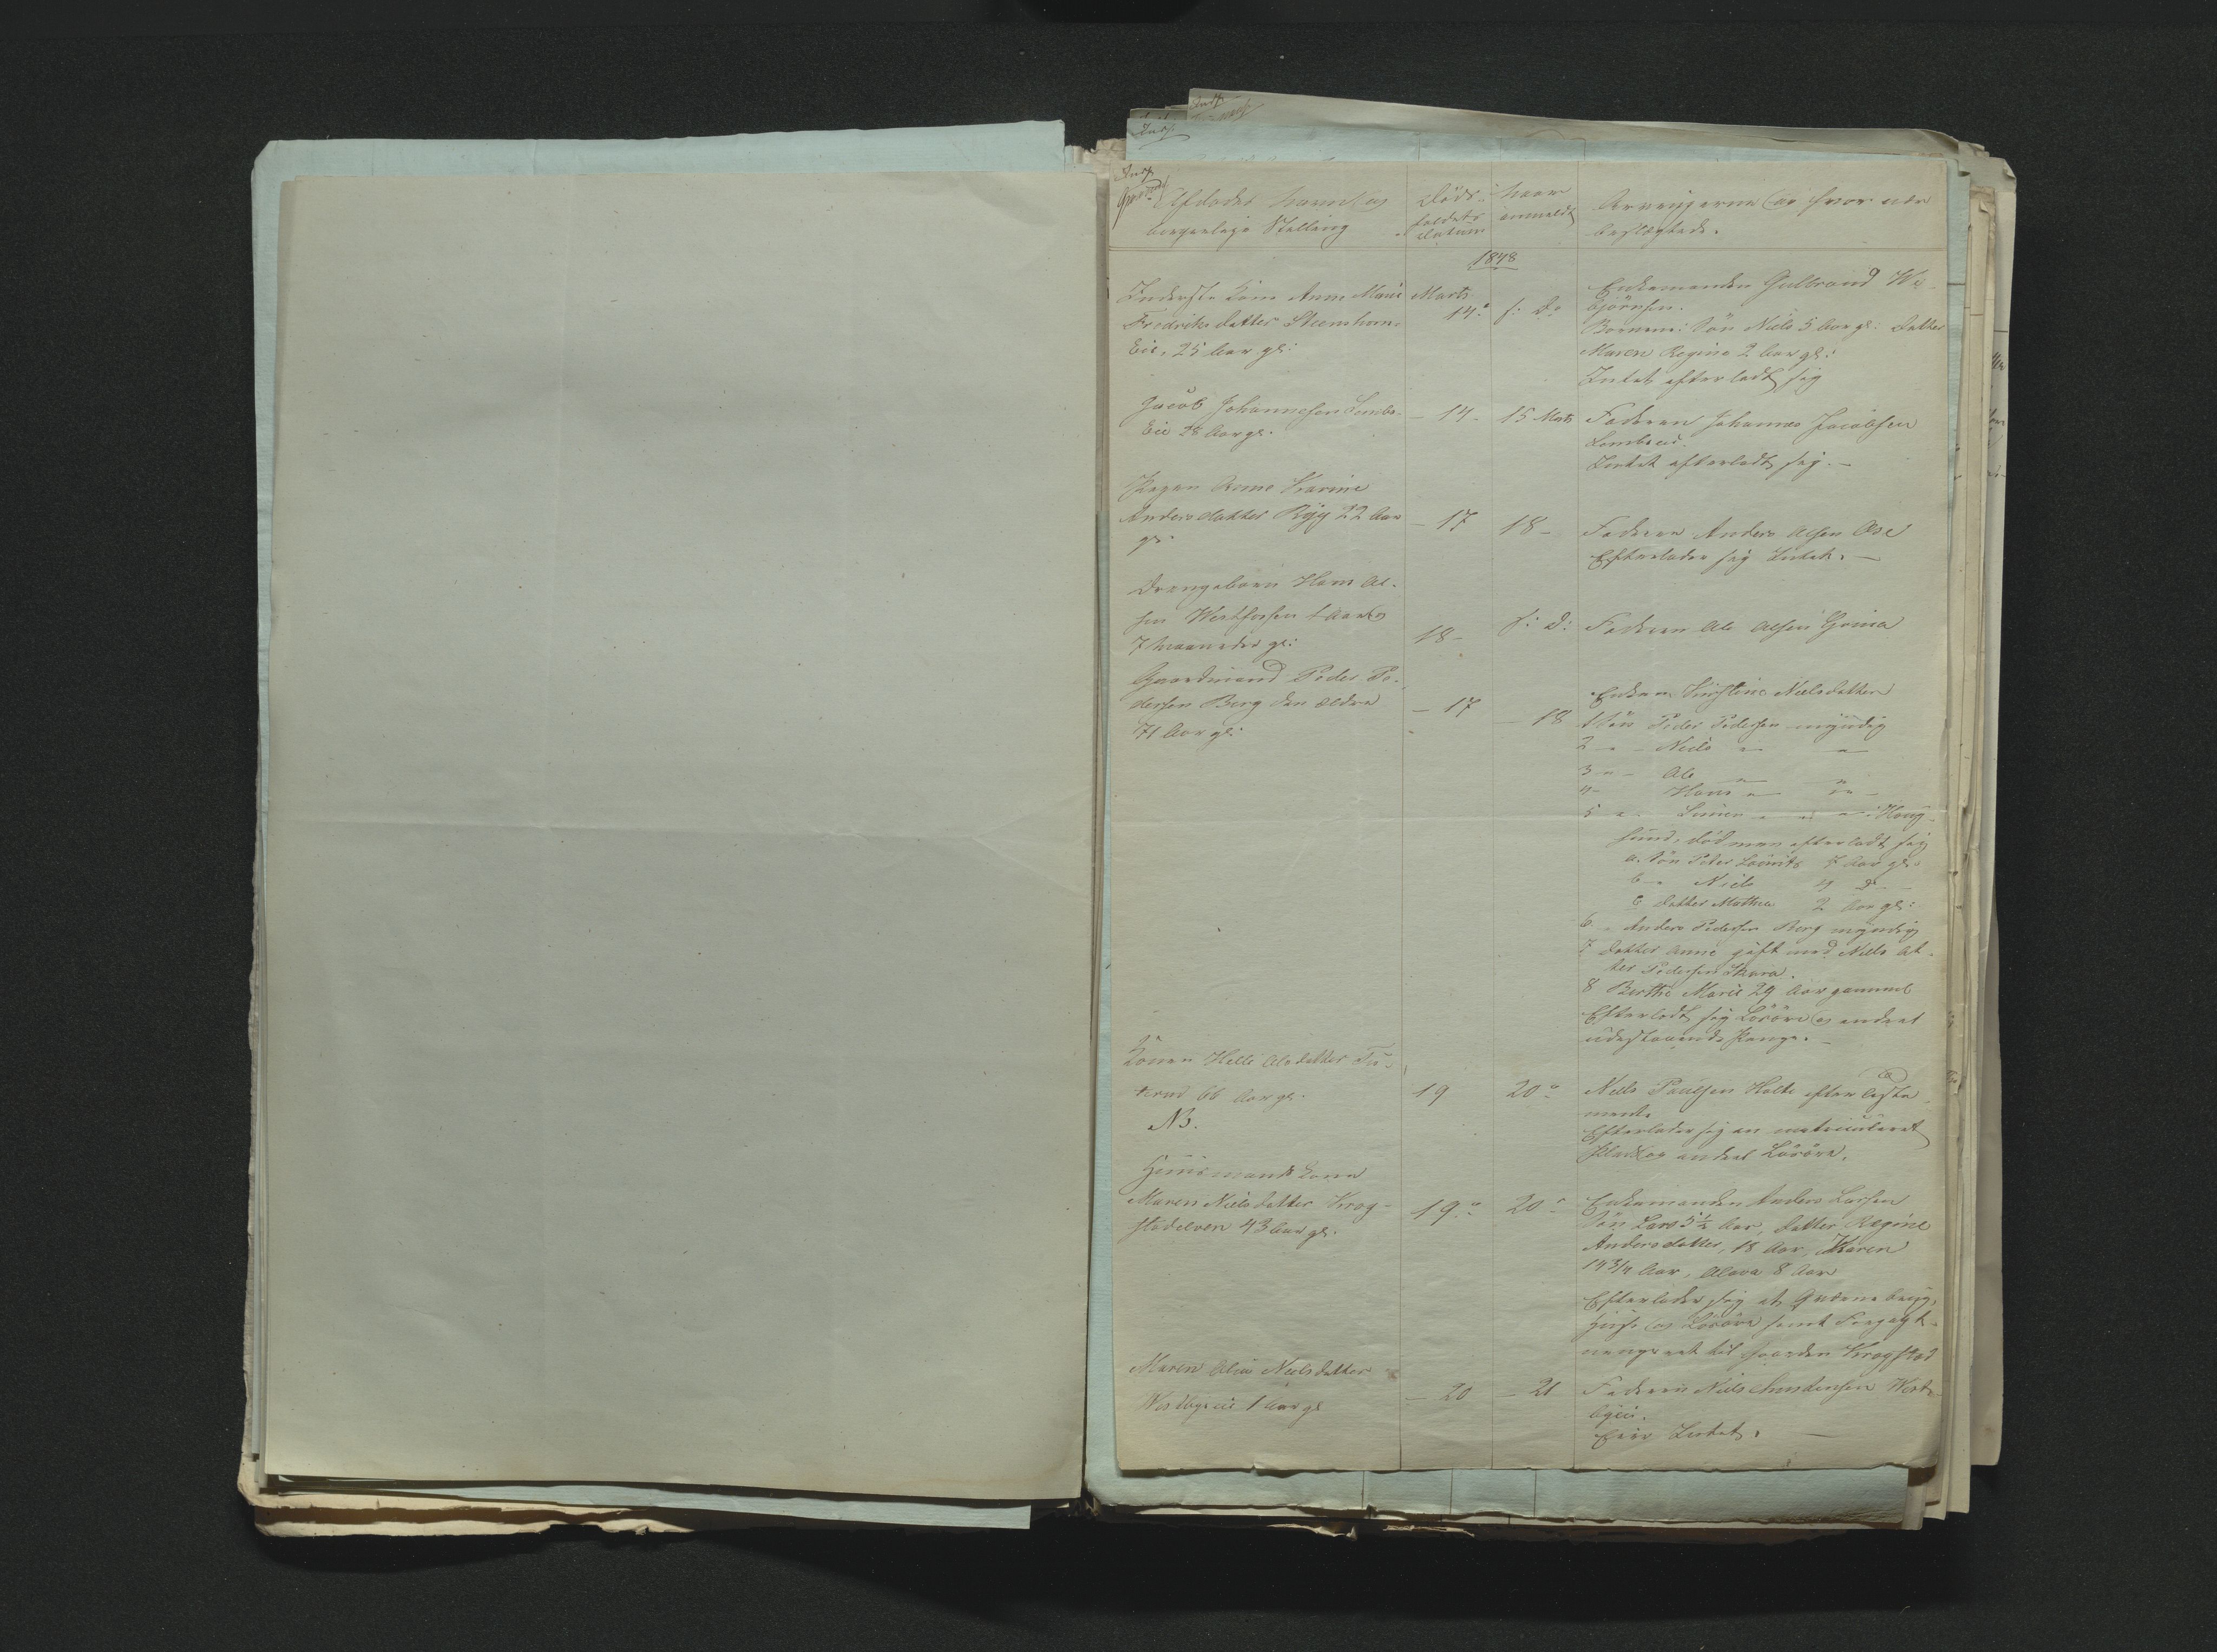 Afdødes Navn og
borgerlige Stilling
Døds-
faldets
datum
Naar
anmeldt
Arvingerne og hvor nær
beslægtede.
1848
Inderste Kone Anne Marie
Fredriksdatter Steenshorn
Eie, 25 Aar gl:
Marts
14.
s: D.
Enkemanden Gulbrand We-
bjørnsen.
Børnene: Søn Niels 5 Aar gl: Datter
Maren Regine 2 Aar gl:
Intet efterladt sig
Jacob Johannesen Lembs-
Eie 28 Aar gl.
- 14 -
15 Marts
Faderen Johannes Jacobsen
Intet efterladt sig. -
Pigen Anne Karine
Andersdatter Ryg 22 Aar
gl.
- 17
18 -
Faderen Anders Olsen
Efterlader sig Intet. -
Drengebarn Hans Ol-
sen Westfossen 1 Aar og
7 Maaneder gl:
18 -
s: D:
Faderen Ole Olsen
Gaardmand Peder Pe-
dersen Berg den ældre
71 Aar gl:
- 17
- 18
Enken Kirstine Nielsdatter
1 Søn Peder Pedersen myndig
2 - Niels - -
3 - Ole - -
4 - Hans - -
5 - Simen - - i Houg-
sund, død men efterladt sig
a. Søn Peter Lauritz 7 Aar gl:
b - Niels 4 D -
c Datter Mathea 2 Aar gl:
6 - Anders Pedersen Berg myndig
7 Datter Anne gift med Niels
Pedersen Skara.
8 Berthe Marie 29 Aar gammel
Efterladt sig Løsøre og endeel
udestaaende Penge. -
Konen Helle Olsdatter
66 Aar gl.
NB.
19
20
Niels Paulsen Holte efter Testa-
mente
Efterlader sig en matriculeret
Plads og endeel Løsøre.
Huusmands Kone
Maren Nielsdatter Krog-
stadelven 43 Aar gl.
19
20
Enkemanden Anders Larsen
Søn Lars 5½ Aar, Datter Regine
Andersdatter, 18 Aar, Karen
14 3/4 Aar, Olava 8 Aar
Efterlader sig et
Huse og Løsøre samt
til Gaarden Krogstad
Maren Olia Nielsdatter
Westbye eie 1 Aar gl
- 20
- 21
Faderen Niels Amundsen West-
byeie.
Eier Intet. -